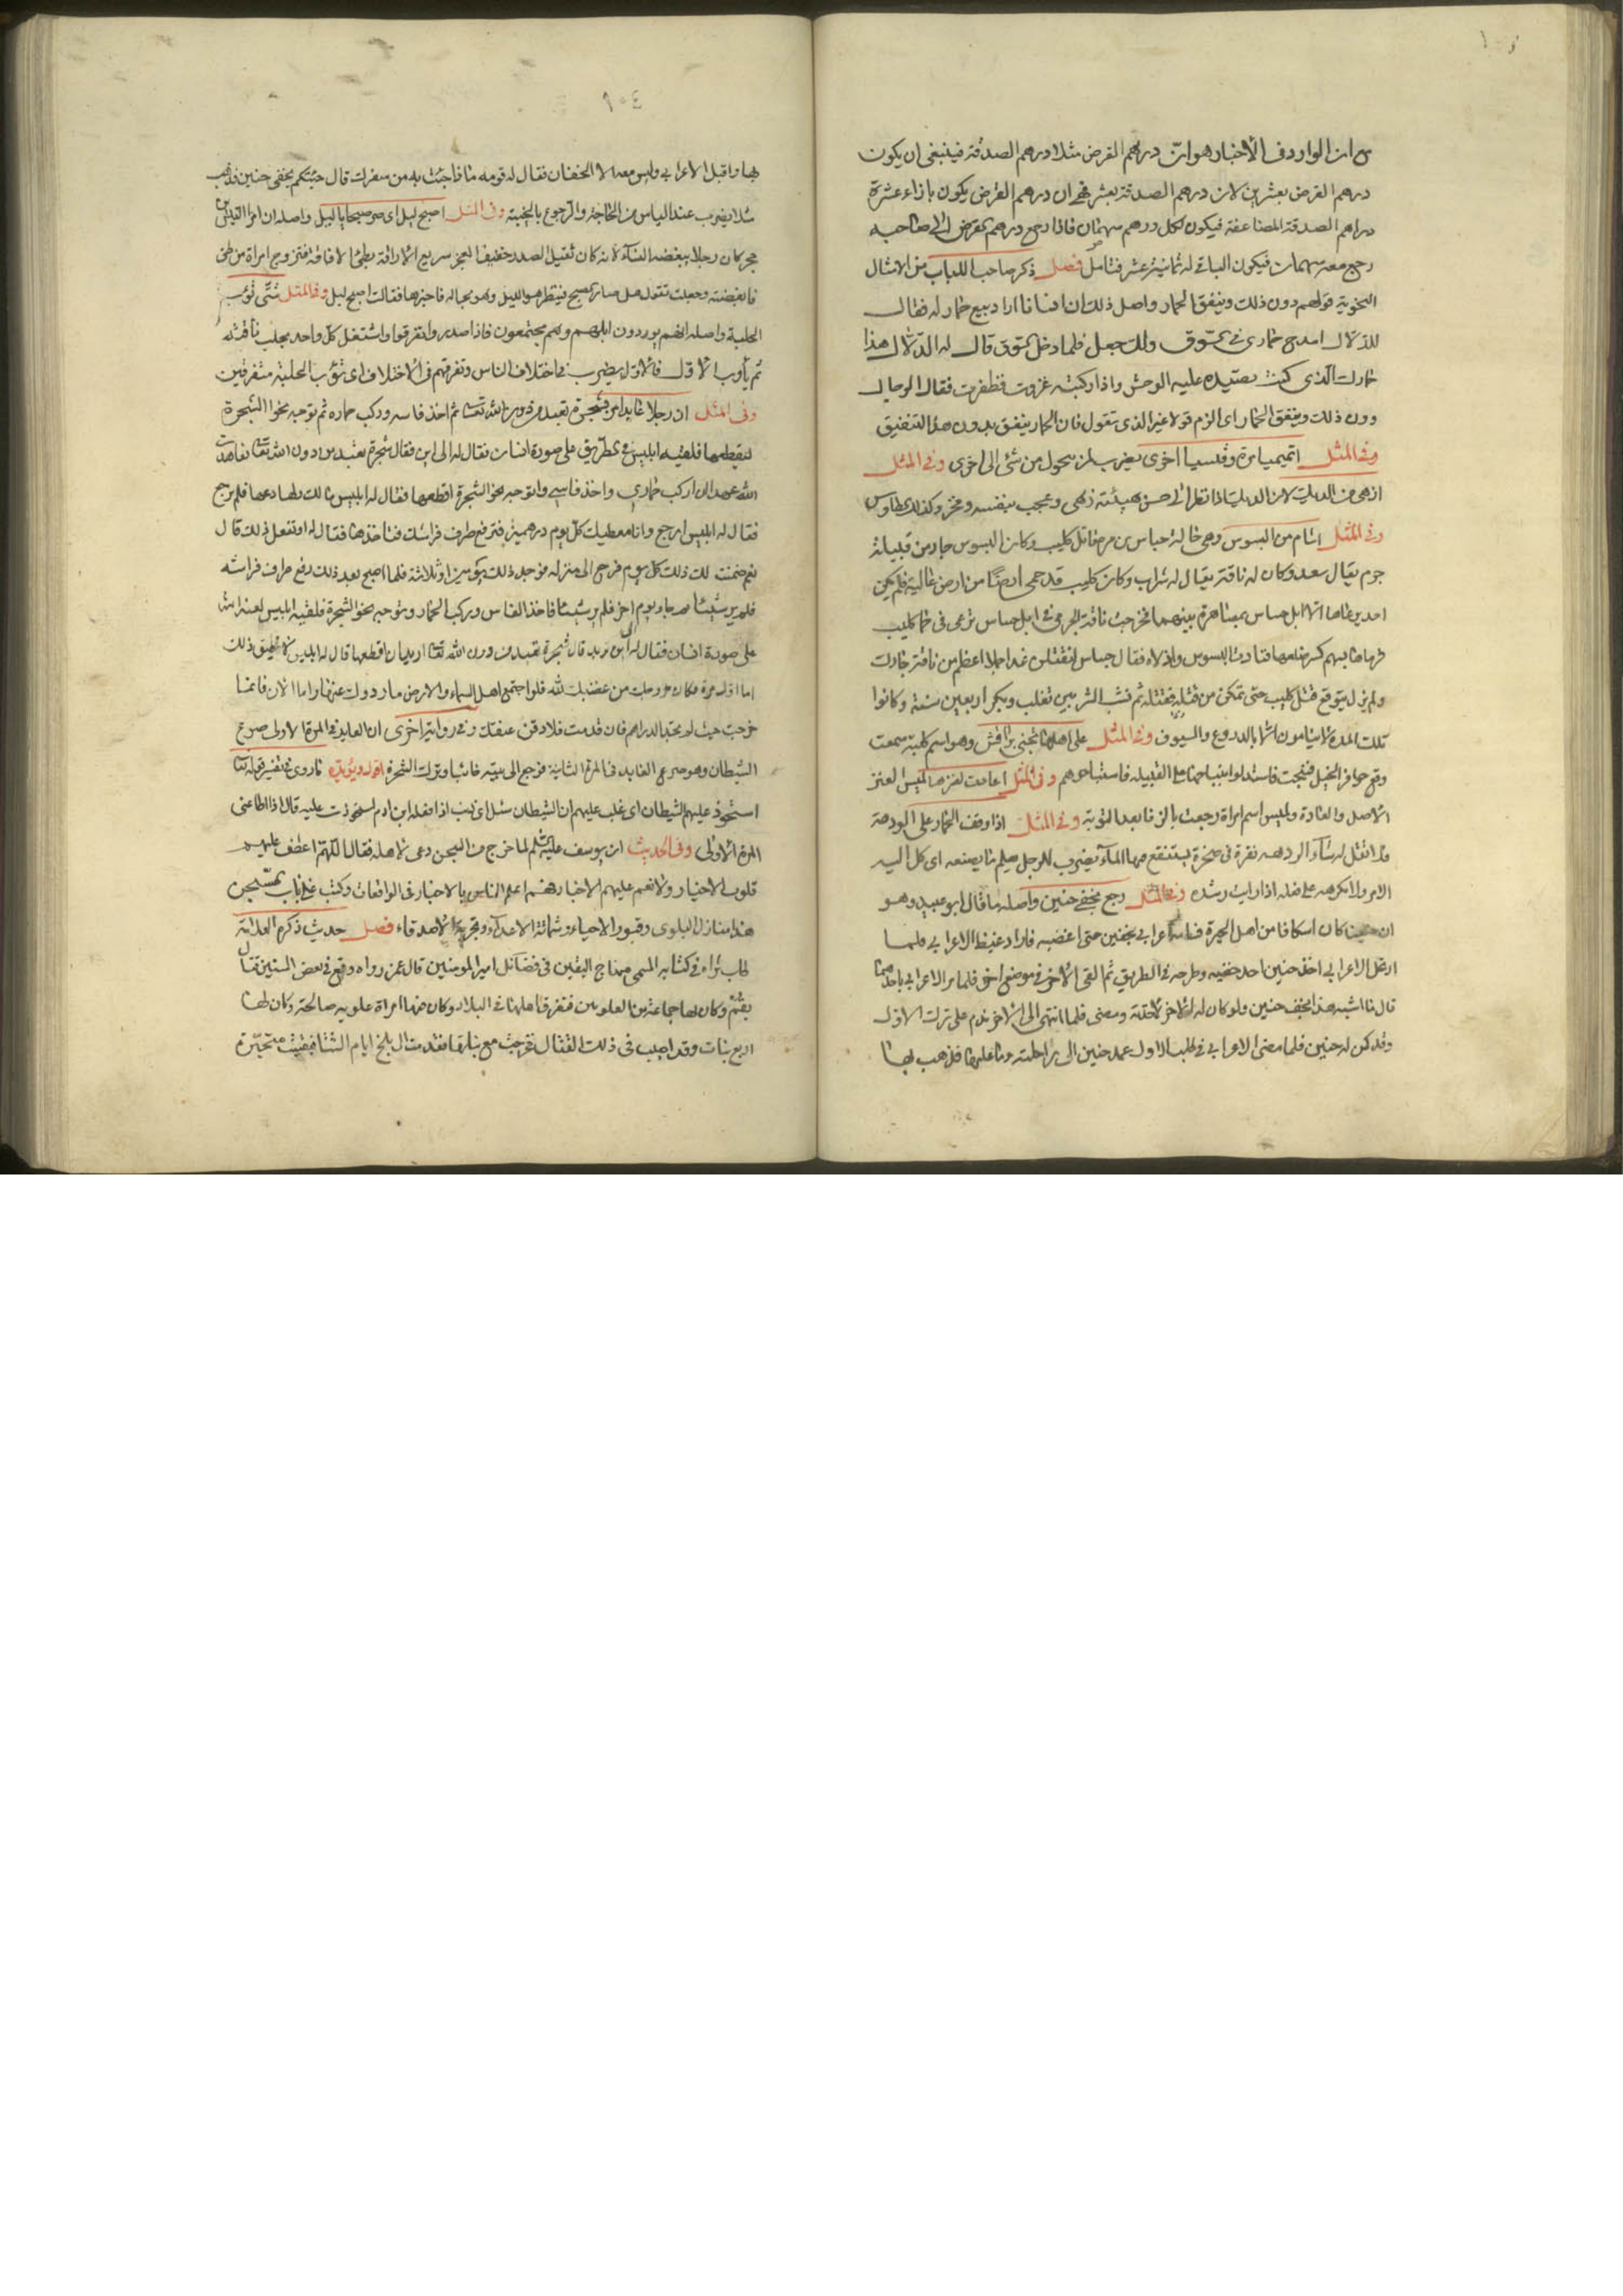 من ان الوارد في الأخبار هو ان درهم القرض مثلا درهم الصدقة فينبغي ان يكون
درهم القرض بعشرين لان درهم الصدقة بعشر فح ان درهم القرض يكون بازاء عشرة
دراهم الصدقة المضاعفة فيكون لكل درهم سهمان فاذا رجع درهم القرض الى صاحبه
رجع معه سهمان فيكون الباقي له ثمانية عشر فتامل فصل ذكر صاحب اللباب من الامثال
النحوية قولهم دون ذلك وينفق الحمار واصل ذلك ان انسانا اراد بيع حمار له فقال
للدلال امدح حماري في السوق ولك جعل فلما دخل السوق قال له الدلال هذا
حمارك الذي كنت تصيد عليه الوحش واذا ركبته غزوت فظفرت فقال الرجال
دون ذلك وينفق الحمار اي الزم قولا غير الذي تقول فان الحمار ينفق بدون هذا التنفيق
وفي المثل اتميميا مرة وقيسيا اخرى يضرب لمن يتحول من شئ الى اخرى وفي المثل
ازهى من الديك لان الديك اذا نظر الى حسن هيئته زهى وعجب بنفسه وفخر وكذلك الطاوس
وفي المثل اشام من البسوس وهي خالة جساس بن مرة قاتل كليب وكان البسوس جار من قبيلة
جرم يقال سعد وكان له ناقة يقال له سراب وكان كليب قد حمى ارضا من ارض عالية فلم يكن
احد يرعاها الا ابل جساس بمصاهرة بينهما فخرجت ناقة الجرمي في ابل جساس ترعى في حمى كليب
فرماها بسهم كسر ضرعها فنادت البسوس واذلاه فقال جساس لنقتلن غدا جملا اعظم من ناقة جارك
ولم يزل يتوقع قتل كليب حتى تمكن من قتله فقتله ثم نشب الشر بين تغلب وبكر اربعين سنة وكانوا
تلك المدة لا ينامون الا بالدروع والسيوف وفي المثل على اهلها تجني براقش وهو اسم كلبة سمعت
وقع حوافر الخيل فنبحت فاستدلوا بنباحها على القبيلة فاستباحوهم وفي المثل عادت لعترها لميس العتر
الاصل والعادة ولميس اسم امراة رجعت بالزنا بعد التوبة وفي المثل اذا وقف الحمار على الردهة
فلا تقل له شاء الردهة نقرة في صخرة يستنقع فيها الماء يضرب للرجل يعلم ما يصنعه اي كل اليه
الامر ولا تكرهه على فعله اذا رايت رشده وفي المثل رجع بخفي حنين واصله ما قال ابو عبيد وهو
ان حنينا كان اسكافا من اهل الحيرة فساومه اعرابي بخفين حتى اغضبه فاراد غيظ الاعرابي فلما
ارتحل الاعرابي اخذ حنين احد خفيه وطرحه في الطريق ثم القى الاخر في موضع اخر فلما مر الاعرابي باحدهما
قال ما اشبه هذا بخف حنين ولو كان له الاخر لاخذته ومضى فلما انتهى الى الاخر ندم على ترك الاول
وقد كمن له حنين فلما مضى الاعرابي في طلب الاول عمد حنين الى راحلته وما عليها فذهب بها
١٠٤
بها واقبل الاعرابي وليس معه الا الخفان فقال له قومه ما ذا جئت به من سفرك قال جئتكم بخفي حنين فذهب
مثلا يضرب عند الياس من الحاجة والرجوع بالخيبة وفي المثل اصبح ليل اي صر صبحا يا ليل واصله ان امرا القيس بن
حجر كان رجلا يبغضه النساء لانه كان ثقيل الصدر خفيف العجز سريع الاراقة بطئ الافاقة فتزوج امراة من طي
فابغضته وجعلت تقول هل صار الصبح فينظر هو الليل وهو بحاله فاخبرها فقالت اصبح ليل وفي المثل شتى تؤب
الحلبة واصله انهم يوردون ابلهم وهم مجتمعون فاذا صدروا تفرقوا واشتغل كل واحد بحلب ناقته
ثم يأوب الاول فالاول يضرب في اختلاف الناس وتفرقهم في الاختلاف اي تؤب الحلبة متفرقين
وفي المثل ان رجلا عابدا مر بشجرة تعبد من دون الله تعالى ثم اخذ فاسه وركب حماره ثم توجه نحو الشجرة
ليقطعها فلقيه ابليس في الطريق على صورة انسان فقال له الى اين فقال شجرة تعبد من دون الله تعالى عاهدت
الله عهدا ان اركب حماري واخذ فاسي واتوجه نحو الشجرة اقطعها فقال له ابليس مالك ولها دعها فلم يرجع
فقال له ابليس ارجع وانا معطيك كل يوم درهمين فترفع طرف فراشك فتاخذها فقال له اوتفعل ذلك قال
نعم ضمنت لك ذلك كل يوم فرجع الى منزله فوجد ذلك يومين او ثلاثة فلما اصبح بعد ذلك رفع طرف فراشه
فلم ير شيئا ثم جاء يوم اخر فلم ير شيئا فاخذ الفاس وركب الحمار وتوجه نحو الشجرة فلقيه ابليس لعنه الله
على صورة انسان فقال له اين تريد قال شجرة تعبد من دون الله تعالى اريد ان اقطعها قال له ابليس لا تطيق ذلك
اما اول مرة فكان خروجك من غضب لله فلو اجتمع اهل السماء والارض ما ردوك عنها واما الان فانما
خرجت حيث لم تجد الدراهم فان قدمت فلادقن عنقك وفي رواية اخرى ان العابد في المرة الاولى صرع
الشيطان وهو صرع العابد في المرة الثانية فرجع الى بيته خائبا وترك الشجرة اقول ويؤيده ما روي في تفسير قوله تعالى
استحوذ عليهم الشيطان اي غلب عليهم ان الشيطان سئل اي ذنب اذا فعله ابن ادم استحوذت عليه قال اذا اطاعني
المرة الاولى وفي الحديث ان يوسف عليه السلام لما خرج من السجن دعى لاهله فقال اللهم اعطف عليهم
قلوب الاخيار ولا تعم عليهم الاخبار فهم اعلم الناس بالاخبار في الواقعات وكتب على باب السجن
هذا منازل البلوى وقبور الاحياء وشماتة الاعداء وتجربة الاصدقاء فصل حديث ذكره العلامة
طاب ثراه في كتابه المسمى بمنهاج اليقين في فضائل امير المؤمنين قال عمن رواه وقع في بعض السنين قتال
بقم وكان بها جماعة من العلويين فتفرق اهلها في البلاد وكان فيها امراة علوية صالحة وكان لها
اربع بنات وقد اصيب في ذلك القتال فخرجت مع بناتها فقدمت الى بلخ ايام الشتا فبقيت متحيرة